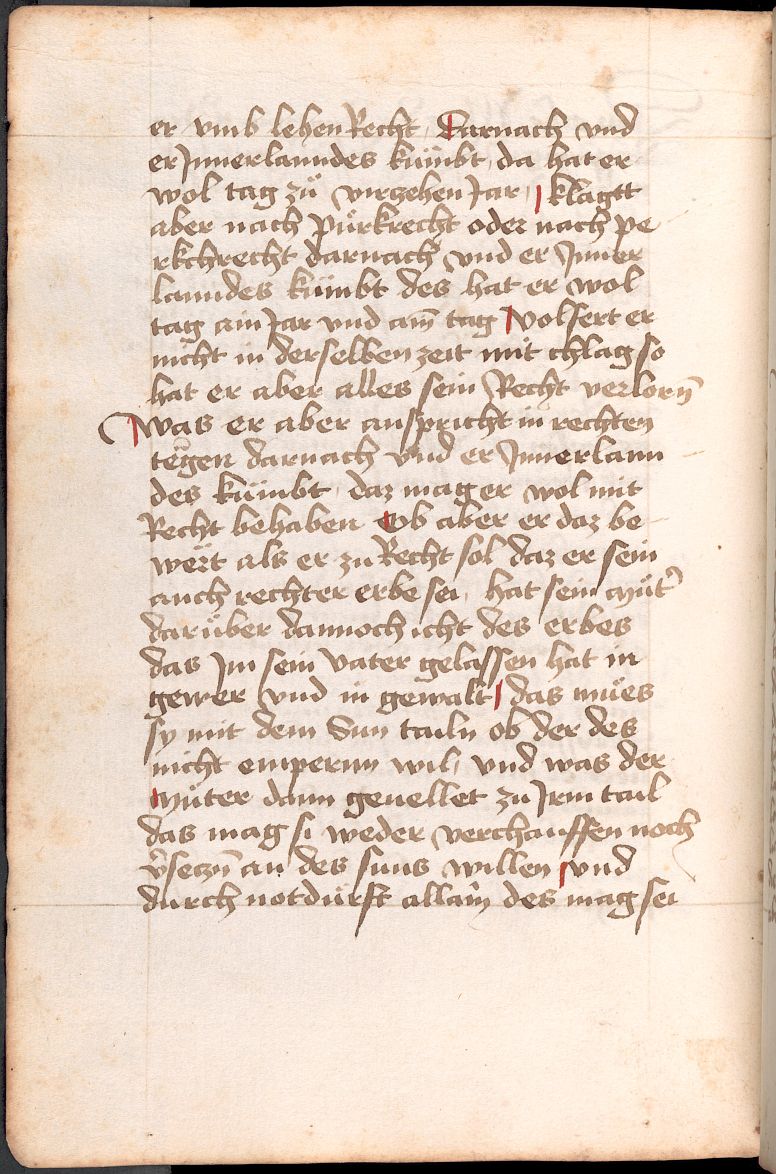 er vmb lehen Recht Darnach vnd
er Jnnerlanndes kümbt da hat er
wol tag zů virzehen Jar klagtt
aber nach Pürkrecht oder nach pe
rkchrecht darnach vnd er Jnner
lanndes kümbt des hat er wol
tag ain Jar vnd ain̄ tag volfert er
nicht in derselben zeit mit chlag so
hat er aber alles sein Recht verlorn̄
was er aber anspricht in rechten
tëgen darnach vnd er Jnnerlann
des kümbt daz mag er wol mit
Recht behaben Ob aber er daz be
wert als er zu Recht sol daz er sein
auch rechter erbe sei, hat sein můt̉
darüber dannoch icht des erbes
das Jm sein vater gelassen hat in
gewer vnd in gewalt das můes
sy mit dem Sun tailn ob der des
nicht enpernn wil, vnd was der
můter dann geuellet zu Jrm tail
das mag si weder verchauffen noch
v̉seczn̄ an des suns willen vnd
durch notdürft allain̄ des mag sei